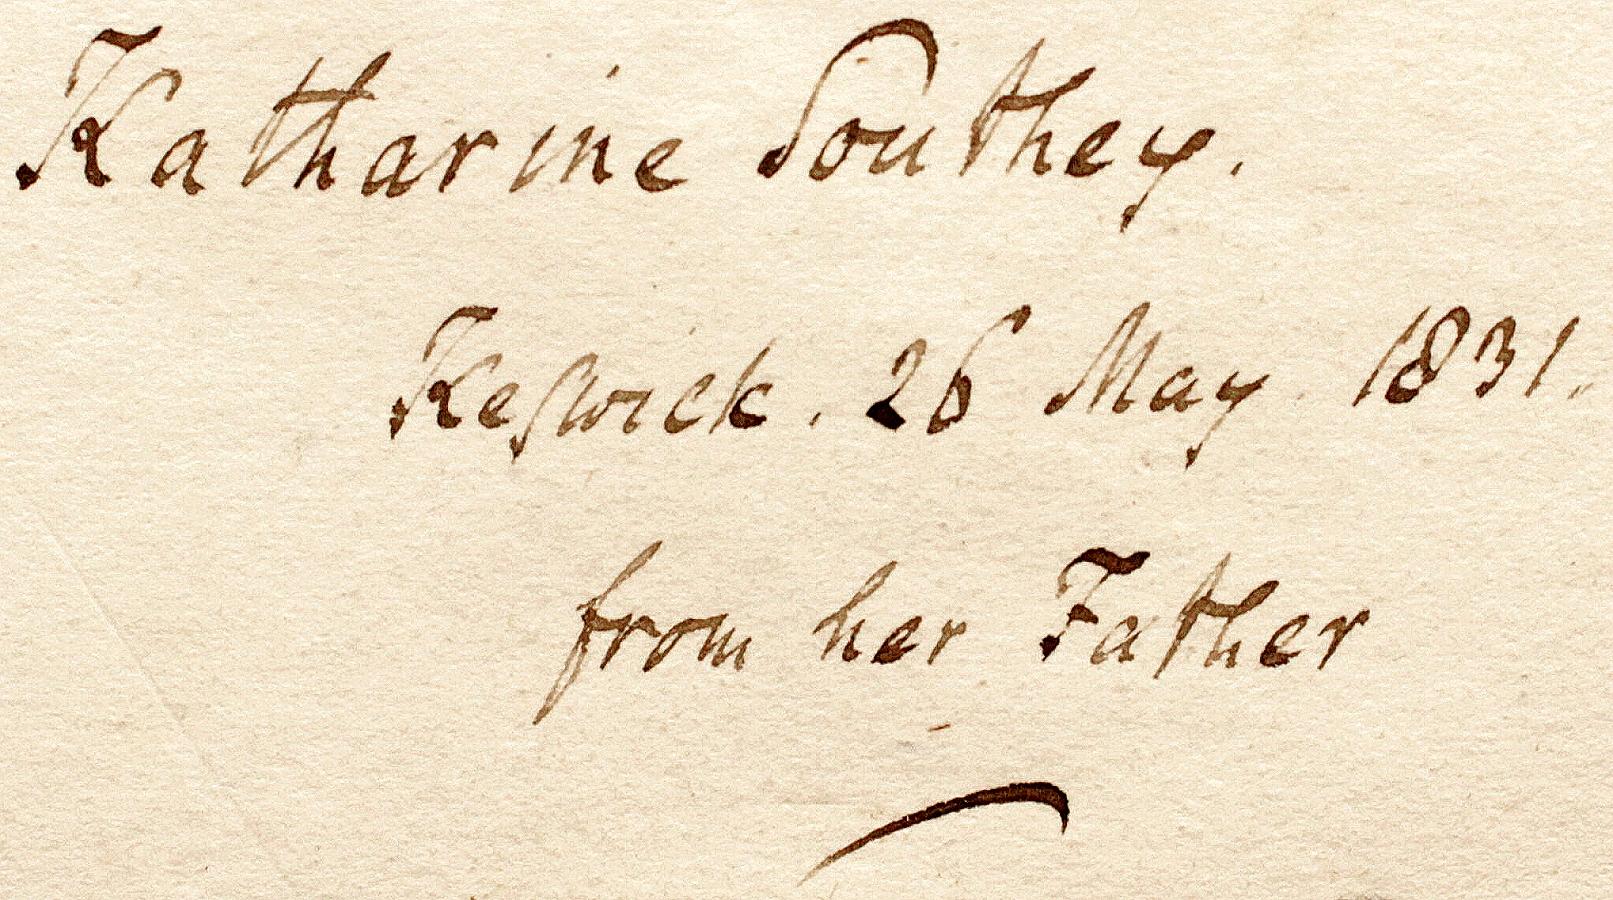 Katharine Southey.
Keſwick. 26 May 1831.
from her Father